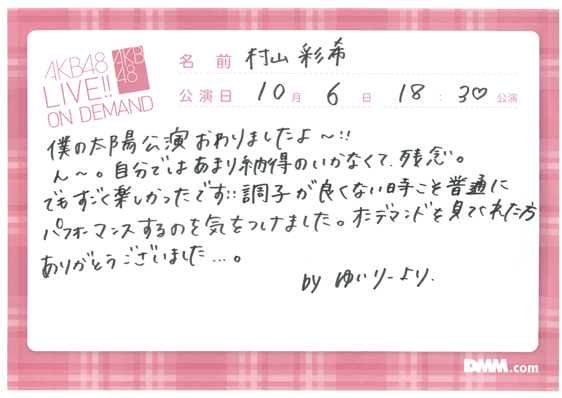 AKB48
LIVE!!
ON DEMAND
AKB
48
名前 村山 彩希
公演日 10月 6日 18:30♡公演
僕の太陽公演おわりましたよ〜!!
ん〜。自分ではあまり納得のいかなくて、残念。
でもすごく楽しかったです!!調子が良くない時こそ普通に
パフォーマンスするのを気をつけました。オンデマンドを見てくれた方
ありがとうございました...。
by ゆいりーより.
DMM.com